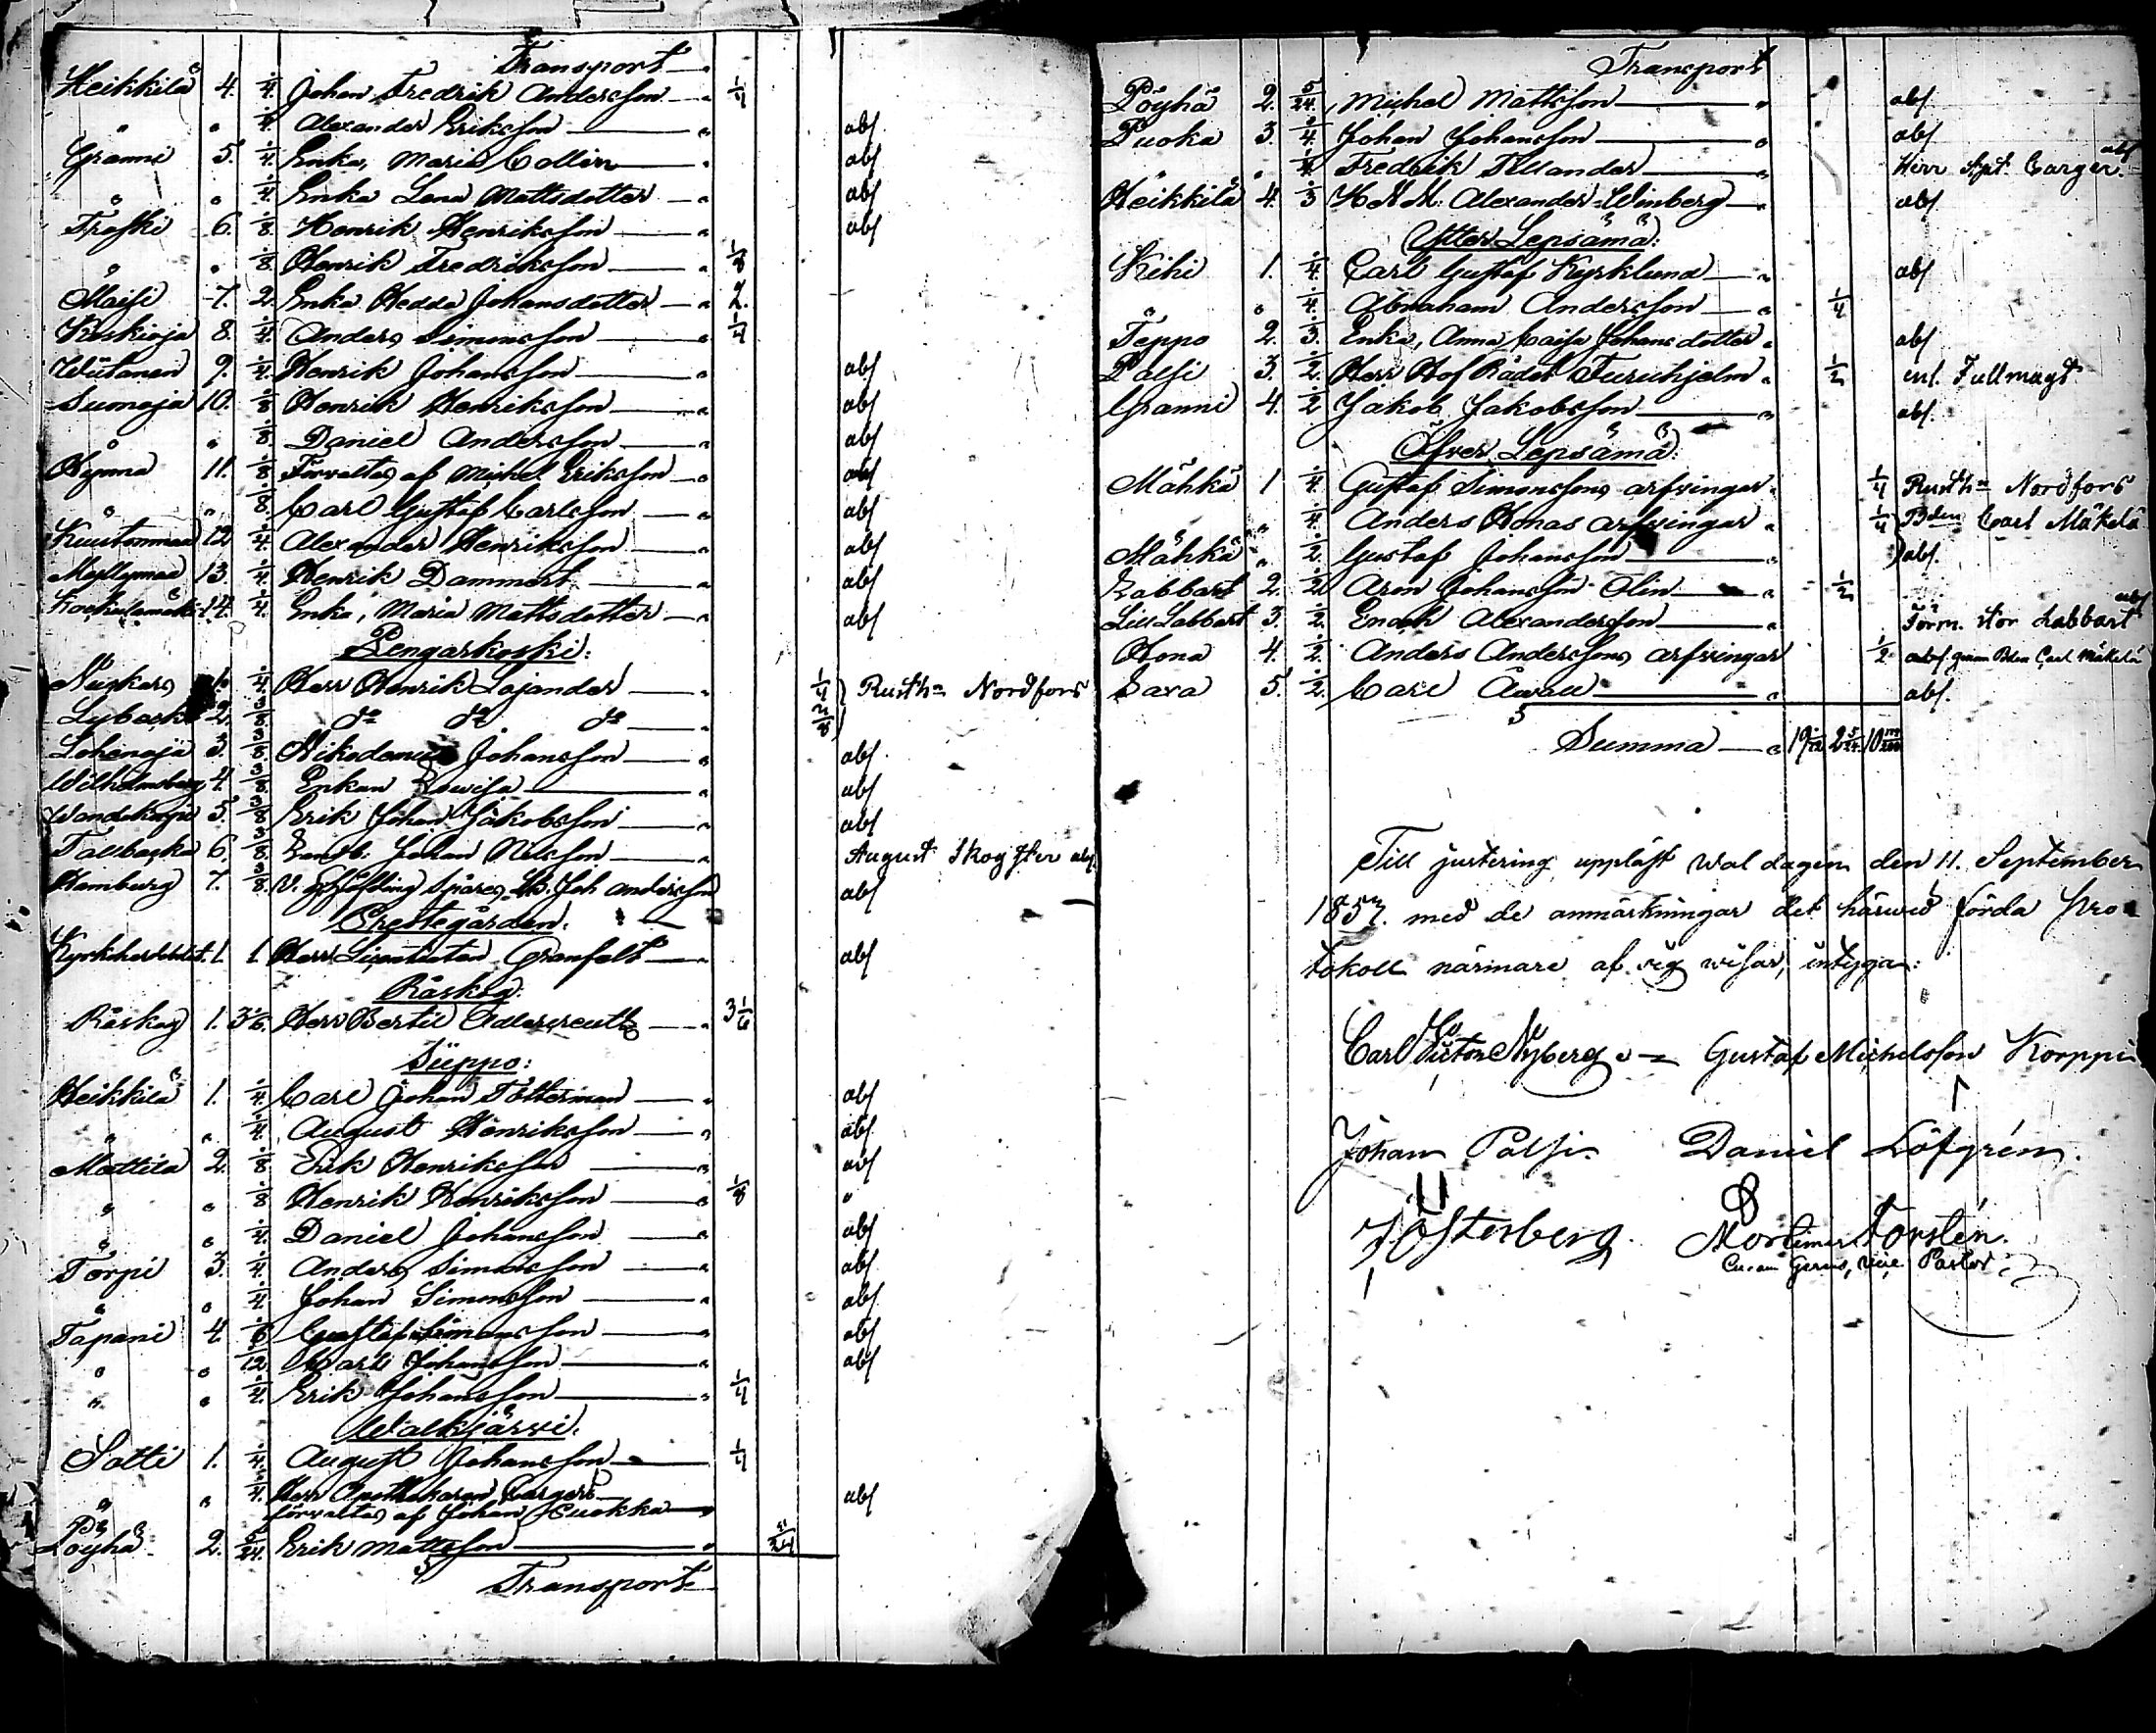 Transport
Heikkilä 4. 1/4. Johan Fredrik Andersson 1/4
" " 1/4. Alexander Eriksson abs
Granni 5. 1/4. Enka, Maria Collin abs
" " 1/4. Enka Lena Mattsdotter abs
6. 1/8. Henrik Henriksson abs
" " 1/8. Henrik Fredriksson 1/8
Maisi 7. 2. Enka Hedda Johansdotter 2.
Koskioja 8. 1/4. Anders Simonsson 1/4
9. 1/4. Henrik Johansson abs
Sumoja 10. 1/8 Henrik Henriksson abs
" " 1/8. Daniel Andersson abs
11. 1/8 Förvaltas af Michel Eriksson abs
" " 1/8. Carl Gustaf Carlsson abs
12 1/4. Alexander Henriksson abs
Myllymaa 13. 1/4. Henrik Dammert abs
14. 1/4. Enka, Maria Mattsdotter abs
Pengarkoski:
1. 1/4. Herr Henrik Lojander 1/4 Rusth= Nordfors
Lyback 2. 3/8. do do do 3/8
Lohenoja 3. 3/8. Nikodemus Johansson abs
Wilhelmsberg 4. 3/8. Enkan Lowisa abs
5. 3/8 Erik Johan Jakobsson abs
Tallbacka 6. 3/8. Landb. Johan Nilsson August Skogster abs
Hamburg 7. 3/8. Joh Andersson abs
Prestegården.
1. 1. Herr Granfelt abs
Råskog.
Råskog 1. 3 1/6. Herr Bertil Adlercreutz 3 1/6
Siippo:
Heikkilä 1. 1/4. Carl Johan Tötterman abs
" " 1/4. August Henriksson abs
Mattila 2. 1/8 Erik Henriksson abs
" " 1/8 Henrik Henriksson 1/8 "
" " 1/4. Daniel Johansson abs
Torpi 3. 1/4. Anders Simonsson abs
" " 1/4. Johan Simonsson abs
Tapani 4. 1/6 Gustaf Simonsson abs
" " 1/12. Carl Johansson abs
" " 1/4. Erik Johansson 1/4
Walkjärvi.
Sotti 1. 1/4. August Johansson 1/4
" " 1/4. Herr Apothekaren Cargers
förvaltas af Johan Kuokka abs
Pöyhä 2. 5/24. Erik Mattsson 5/24
Transport
Transport
Pöyhä 2. 5/24. Michel Mattsson abs
Puoka 3. 1/4. Johan Johansson abs
" 1/4. Fredrik Tillander Herr Apt. Carger. abs
Heikkilä 4. 1/3 Alexander Winberg abs
Ytter Lepsämä:
Kihi 1. 1/4. Carl Gustaf Kyrklund abs
" " 1/4. Abraham Andersson 1/4
Teppo 2. 1/3. Enka, Anna Caisa Johansdotter abs
Palsi 3. 1/2. Herr Hof Rådet Furuhjelm 1/2 enl. Fullmagt
Granni 4. 1/2 Jakob Jakobsson abs.
Öfver Lepsämä:
Mähkä 1 1/4. Gustaf Simonssons arfvingar 1/4 Rusth= Nordfors
" 1/4. Anders Honas arfvingar 1/4 Bden Carl Mäkelä
Mähkä " 1/2. Gustaf Johansson abs.
Labbart 2. 1/2 Aron Johansson Olin 1/2
Lill Labbart 3. 1/2. Enoch Alexandersson Förm. stor Labbart abs
Hona 4. 1/2. Anders Anderssons arfvingar 1/2 abs. genom Bden Carl Mäkelä
Saxa 5. 1/2. Carl Awall abs.
Summa
Till justering uppläst Wal dagen den 11. September
1857. med de anmärkningar det härwid förda Pro-
tokoll närmare af sig wisar, intyga:
Carl Victor Nyberg Gustaf Michelsson Korppi
Johan Palsi. Daniel Löfgrén.
J Österberg. Mortimer Forstén.
vice Pastor